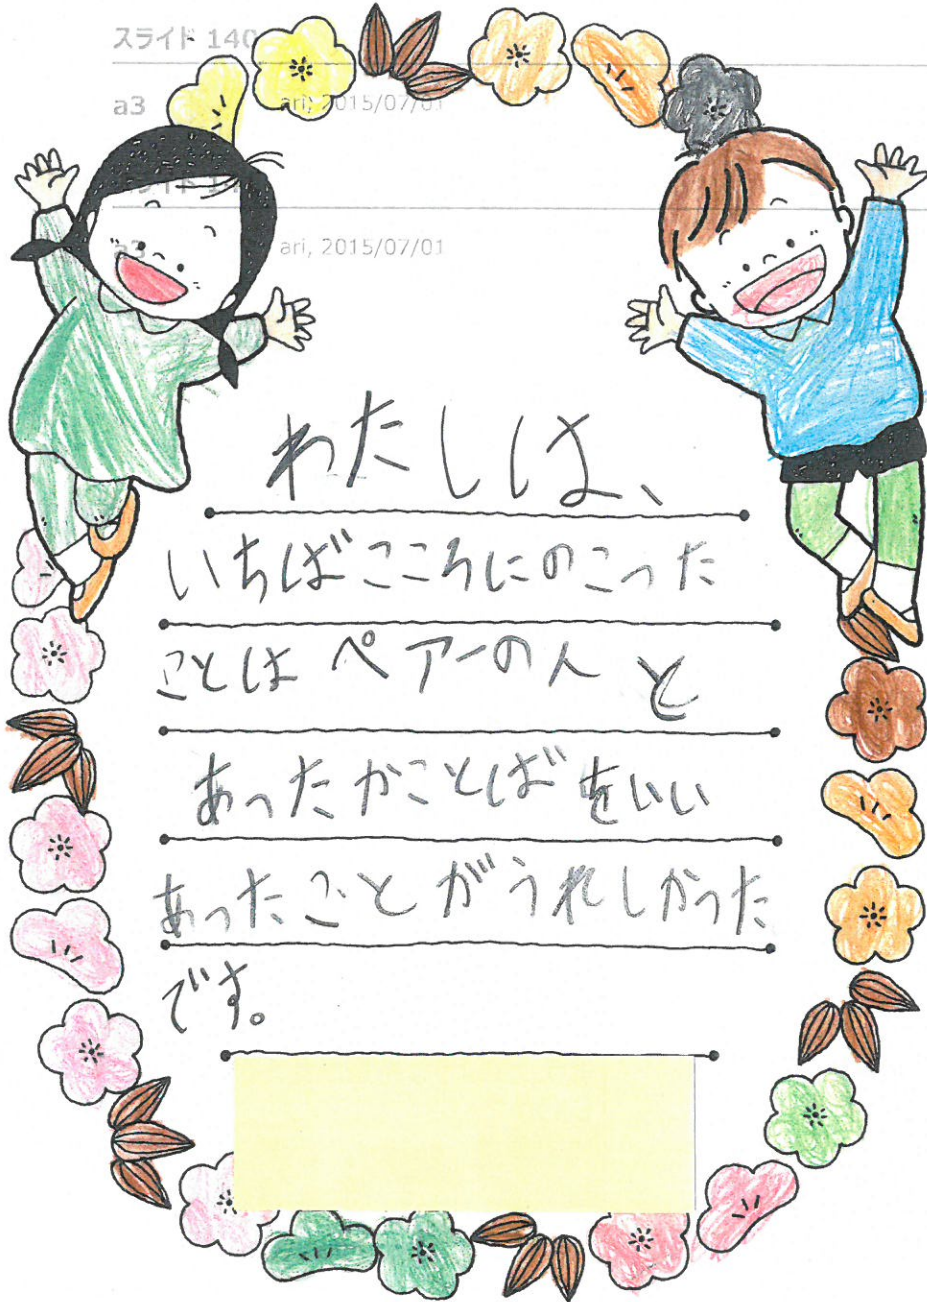 スライド 140
a3 ari, 2015/07/01
a3 ari, 2015/07/01
わたしは、
いちばこころにのこった
ことは ペアーの人 と
あったかことばをいい
あったことがうれしかった
です。